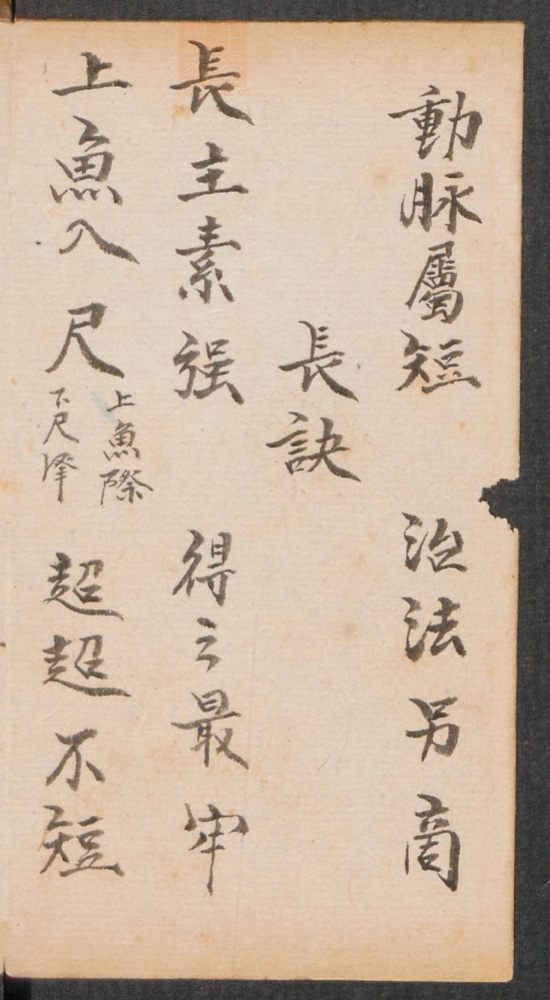 動脉屬短 治法另商
長訣
長主素强 得之最牢
上魚入尺 上魚際 下尺澤 超超不短